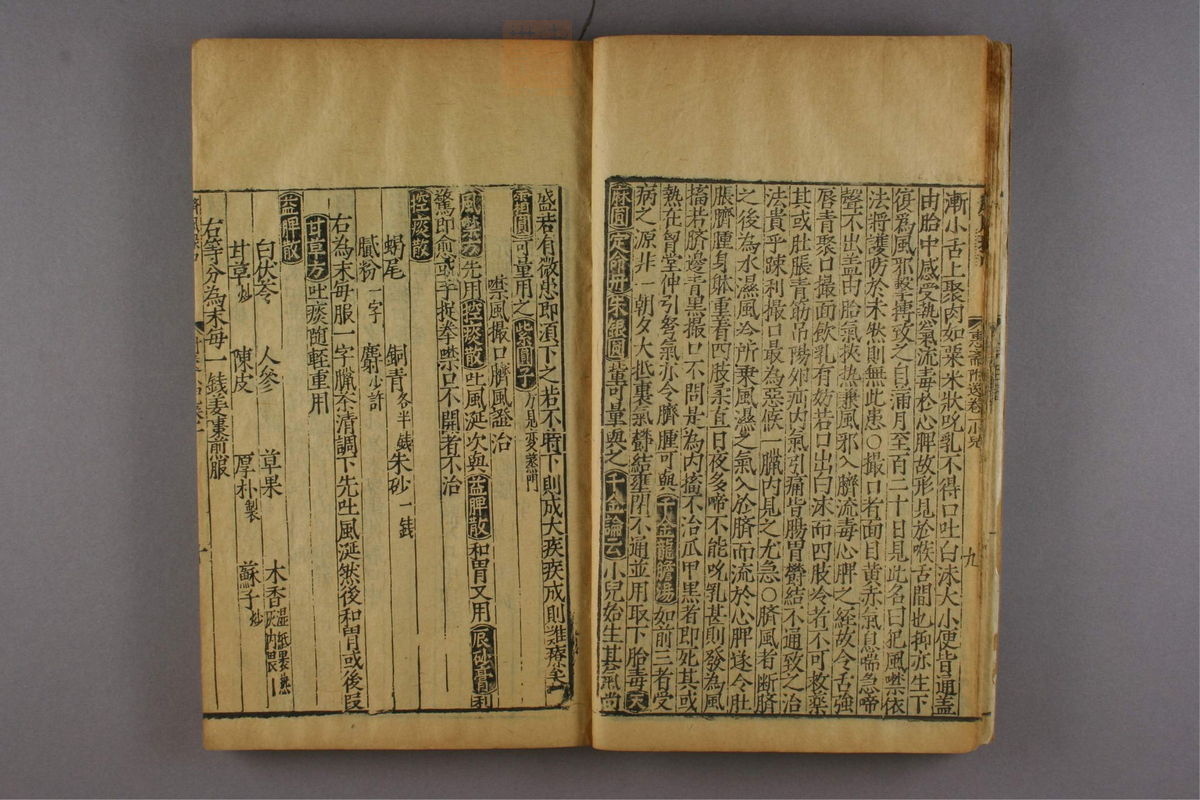 漸小舌上聚肉如粟米狀吮乳不得口吐白沫大小便皆通蓋
由胎中感受熱氣流毒於心脾故形見於喉舌間也抑亦生下
復為風邪擊搏致之自滿月至百二十日見此名曰犯風噤依
法將護防於未然則無此患○撮口者面目黃赤氣息喘急啼
聲不出蓋由胎氣挾熱兼風邪入臍流毒心脾之經故令舌強
唇青聚口撮面飲乳有妨若口出白沫而四肢冷者不可救藥
其或肚脹青筋吊陽卵疝內氣引痛皆腸胃鬱結不通致之治
法貴乎疎利撮口最為惡候一臘內見之尤急○臍風者斷臍
之後為水濕風冷所乗風濕之氣入於臍而流於心脾遂令肚
脹臍腫身躰重著四肢柔直日夜多啼不能吮乳甚則發為風
搐若臍邊青黑撮口不問是為內搐不治爪甲黑者即死其或
熱在胷堂伸引弩氣亦令臍腫可與千金龍膽湯如前三者受
病之源非一朝夕大抵裏氣鬱結壅閉不通並用取下胎毒天
麻圓定命丹朱銀圓輩可量與之千金論云小兒始生其氣尚
盛若有微患即須下之若不時下則成大疾疾成則難療矣
圓可量用之紫圓子方見變蒸門
噤風撮口臍風證治
風噤方先用控痰散吐風涎次與益脾散和胃又用辰砂膏利
驚即愈或手捉拳噤口不開者不治
控痰散
蝎尾 銅青各半錢朱砂一錢
膩粉一字 麝少許
右為末每服一字臘茶清調下先吐風涎然後和胃或後段
甘草方吐痰隨輕重用
益脾散
白茯苓 人參 草果 木香濕紙裹
甘草炒 陳皮 厚朴製 蘇子炒
右等分為末每一錢姜棗煎服
九